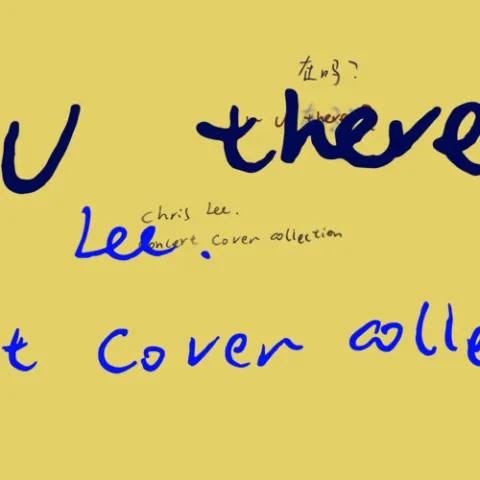 在吗?
r u there?
U there
Chris Lee.
Lee.
concert cover collection
t cover colle